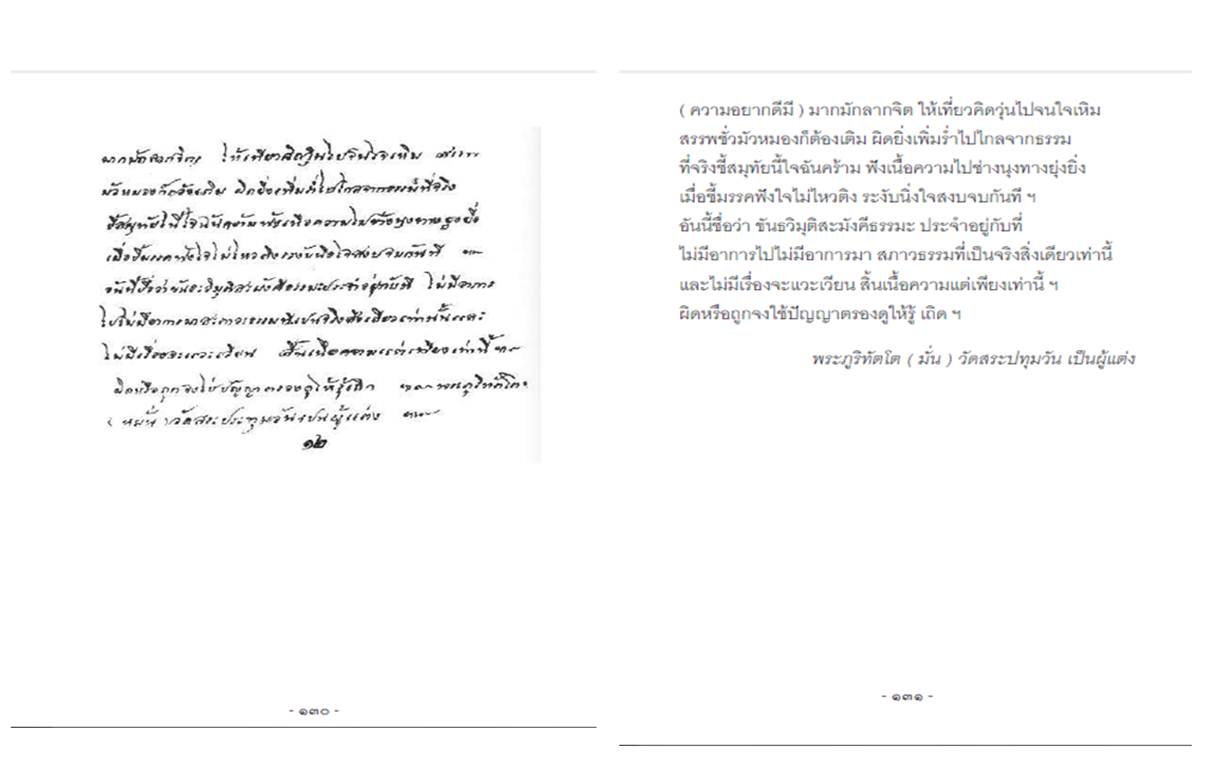 มากมักลากจิตร ให้เที่ยวคิดวุ่นไปจนใจเหิม สรรพ
มัวหมองก็ต้องเติม ผิดยิ่งเพิ่มร่ำไปไกลจากธรรมที่จริง
ชี้สมุทัยนี้ใจฉันคร้ามฟังเนื้อความไปช่างนุงทางยุ่งยิ่ง
เมื่อชี้มรรคฟังใจไม่ไหวติงระงับนิ่งใจสงบจบกันที ฯ
อันนี้ชื่อว่าขันธะวิมุติสะมังคีธรรมะประจำอยู่กับที่ ไม่มีอาการ
ไปไม่มีอาการมาสะภาวะธรรมที่เปนจริงสิ่งเดียวเท่านั้นและ
ไม่มีเรื่องจะแวะเวียน สิ้นเนื้อความแต่เพียงเท่านี้ ฯ
ผิดหรือถูกจงใช้ปัญญาตรองดูให้รู้เถิด ฯ พระภูริทัตโต
( หมั่น ) วัดสระประทุมวันเปนผู้แต่ง ฯ
๑๒
- ๑๓๐ -
( ความอยากดีมี ) มากมักลากจิต ให้เที่ยวคิดวุ่นไปจนใจเหิม
สรรพชั่วมัวหมองก็ต้องเติม ผิดยิ่งเพิ่มร่ำไปไกลจากธรรม
ที่จริงชี้สมุทัยนี้ใจฉันคร้าม ฟังเนื้อความไปช่างนุงทางยุ่งยิ่ง
เมื่อชี้มรรคฟังใจไม่ไหวติง ระงับนิ่งใจสงบจบกันที ฯ
อันนี้ชื่อว่า ขันธวิมุติสะมังคีธรรมะ ประจำอยู่กับที่
ไม่มีอาการไปไม่มีอาการมา สภาวธรรมที่เป็นจริงสิ่งเดียวเท่านี้
และไม่มีเรื่องจะแวะเวียน สิ้นเนื้อความแต่เพียงเท่านี้ ฯ
ผิดหรือถูกจงใช้ปัญญาตรองดูให้รู้ เถิด ฯ
พระภูริทัตโต ( มั่น ) วัดสระปทุมวัน เป็นผู้แต่ง
- ๑๓๑ -